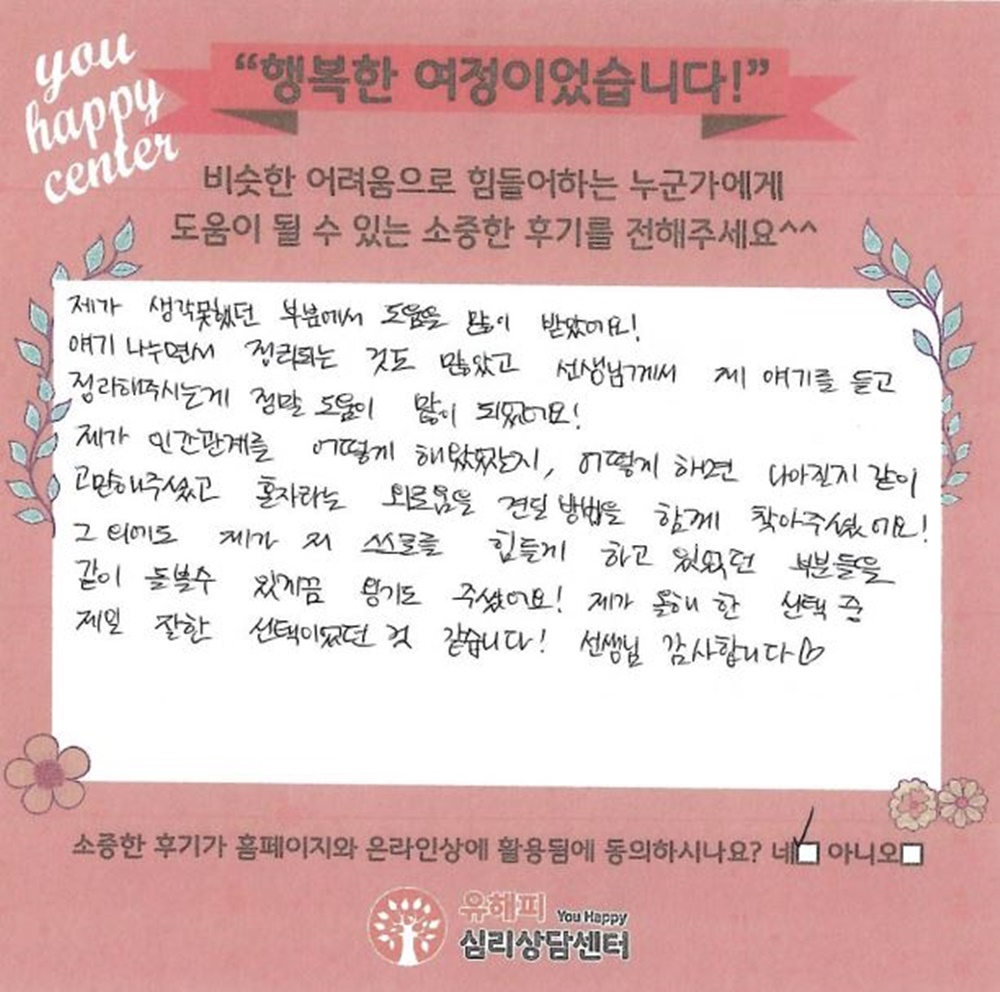 you
happy
center
“행복한 여정이었습니다!”
비슷한 어려움으로 힘들어하는 누군가에게
도움이 될 수 있는 소중한 후기를 전해주세요^^
제가 생각못했던 부분에서 도움을 많이 받았어요!
얘기 나누면서 정리되는 것도 많았고 선생님께서 제 얘기를 듣고
정리해주시는게 정말 도움이 많이 되었어요!
제가 인간관계를 어떻게 해왔었는지, 어떻게 하면 나아질지 같이
고민해주셨고 혼자라는 외로움을 견딜 방법을 함께 찾아주셨어요!
그 외에도 제가 저 스스로를 힘들게 하고 있었던 부분들을
같이 돌볼수 있게끔 용기도 주셨어요! 제가 올해 한 선택 중
제일 잘한 선택이었던 것 같습니다! 선생님 감사합니다♡
소중한 후기가 홈페이지와 온라인상에 활용됨에 동의하시나요? 네 아니오
유해피 You Happy
심리상담센터